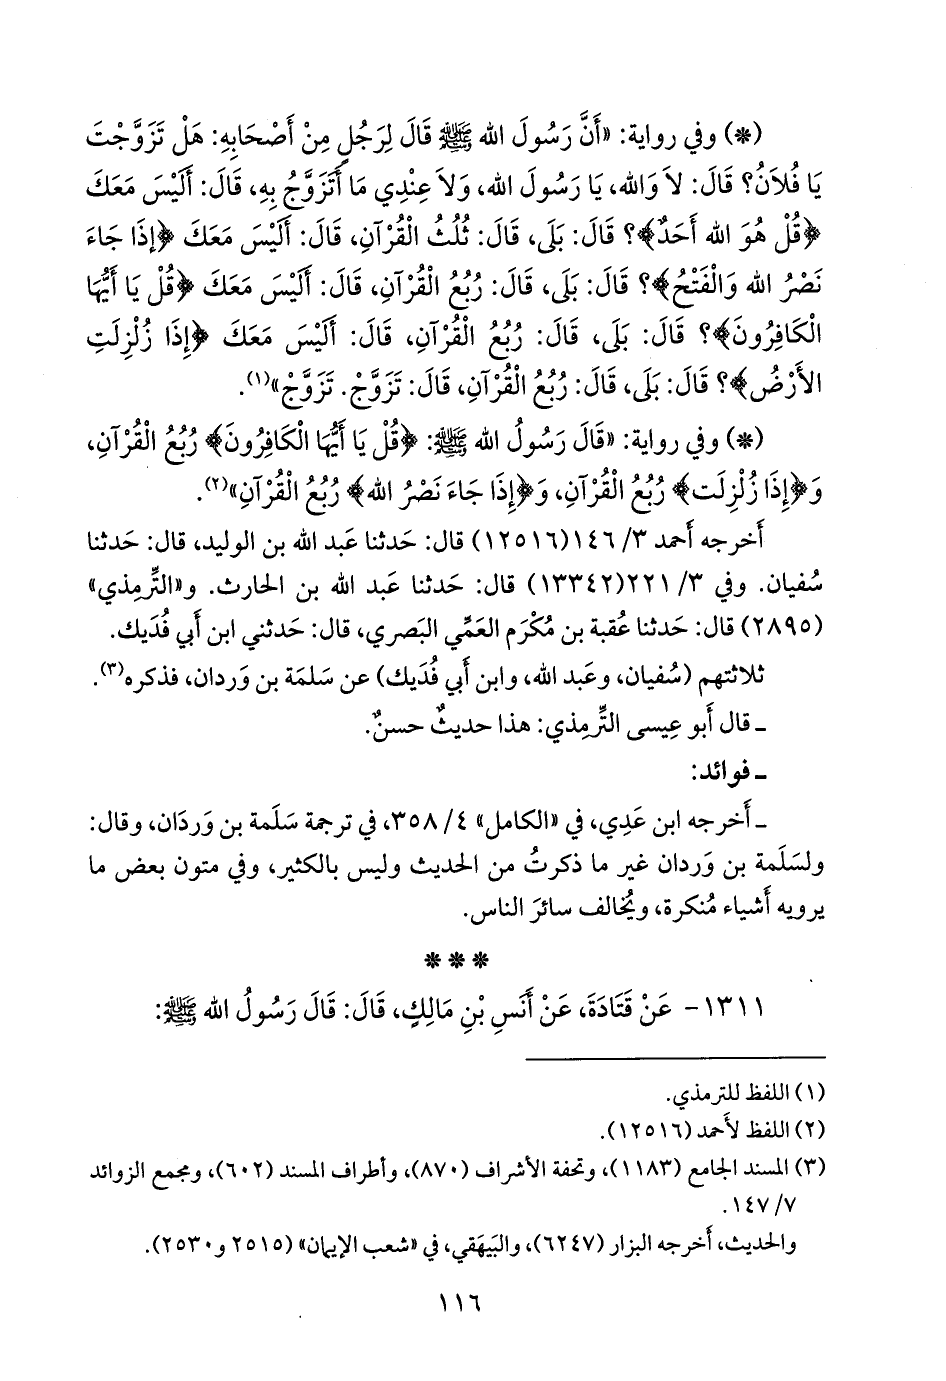 (*) وفي رواية: «أَنَّ رَسُولَ الله ﷺ قَالَ لِرَجُلٍ مِنْ أَصْحَابِهِ: هَلْ تَزَوَّجْتَ
يَا فُلاَنُ؟ قَالَ: لاَ وَالله، يَا رَسُولَ الله، وَلاَ عِنْدِي مَا أَتَزَوَّجُ بِهِ، قَالَ: أَلَيْسَ مَعَكَ
﴿قُلْ هُوَ الله أَحَدٌ﴾؟ قَالَ: بَلَى، قَالَ: ثُلُثُ الْقُرْآنِ، قَالَ: أَلَيْسَ مَعَكَ ﴿إِذَا جَاءَ
نَصْرُ الله وَالْفَتْحُ﴾؟ قَالَ: بَلَى، قَالَ: رُبُعُ الْقُرْآنِ، قَالَ: أَلَيْسَ مَعَكَ ﴿قُلْ يَا أَيُّهَا
الْكَافِرُونَ﴾؟ قَالَ: بَلَى، قَالَ: رُبُعُ الْقُرْآنِ، قَالَ: أَلَيْسَ مَعَكَ ﴿إِذَا زُلْزِلَتِ
الأَرْضُ﴾؟ قَالَ: بَلَى، قَالَ: رُبُعُ الْقُرْآنِ، قَالَ: تَزَوَّجْ. تَزَوَّجْ»(١).
(*) وفي رواية: «قَالَ رَسُولُ الله ﷺ: ﴿قُلْ يَا أَيُّهَا الْكَافِرُونَ﴾ رُبُعُ الْقُرْآنِ،
وَ﴿إِذَا زُلْزِلَت﴾ رُبُعُ الْقُرْآنِ، وَ﴿إِذَا جَاءَ نَصْرُ الله﴾ رُبُعُ الْقُرْآنِ»(٢).
أَخرجه أَحمد ٣/ ١٤٦(١٢٥١٦) قال: حَدثنا عَبد الله بن الوليد، قال: حَدثنا
سُفيان. وفي ٣/ ٢٢١(١٣٣٤٢) قال: حَدثنا عَبد الله بن الحارث. و«التِّرمِذي»
(٢٨٩٥) قال: حَدثنا عُقبة بن مُكْرَم العَمِّي البَصري، قال: حَدثني ابن أَبي فُدَيك.
ثلاثتهم (سُفيان، وعَبد الله، وابن أَبي فُدَيك) عن سَلمَة بن وَردان، فذكره(٣).
ـ قال أَبو عِيسى التِّرمِذي: هذا حديثٌ حسنٌ.
ـ فوائد:
ـ أَخرجه ابن عَدِي، في «الكامل» ٤/ ٣٥٨، في ترجمة سَلَمة بن وَردَان، وقال:
ولسَلَمة بن وَردان غير ما ذكرتُ من الحديث وليس بالكثير، وفي متون بعض ما
يرويه أَشياء مُنكرة، ويُخالف سائرَ الناس.
* * *
١٣١١- عَنْ قَتَادَةَ، عَنْ أَنَسِ بْنِ مَالِكٍ، قَالَ: قَالَ رَسُولُ الله ﷺ:
(١) اللفظ للترمذي.
(٢) اللفظ لأَحمد (١٢٥١٦).
(٣) المسند الجامع (١١٨٣)، وتحفة الأشراف (٨٧٠)، وأطراف المسند (٦٠٢)، ومجمع الزوائد
٧/ ١٤٧.
والحديث، أَخرجه البزار (٦٢٤٧)، والبَيهَقي، في «شعب الإيمان» (٢٥١٥ و٢٥٣٠).
١١٦